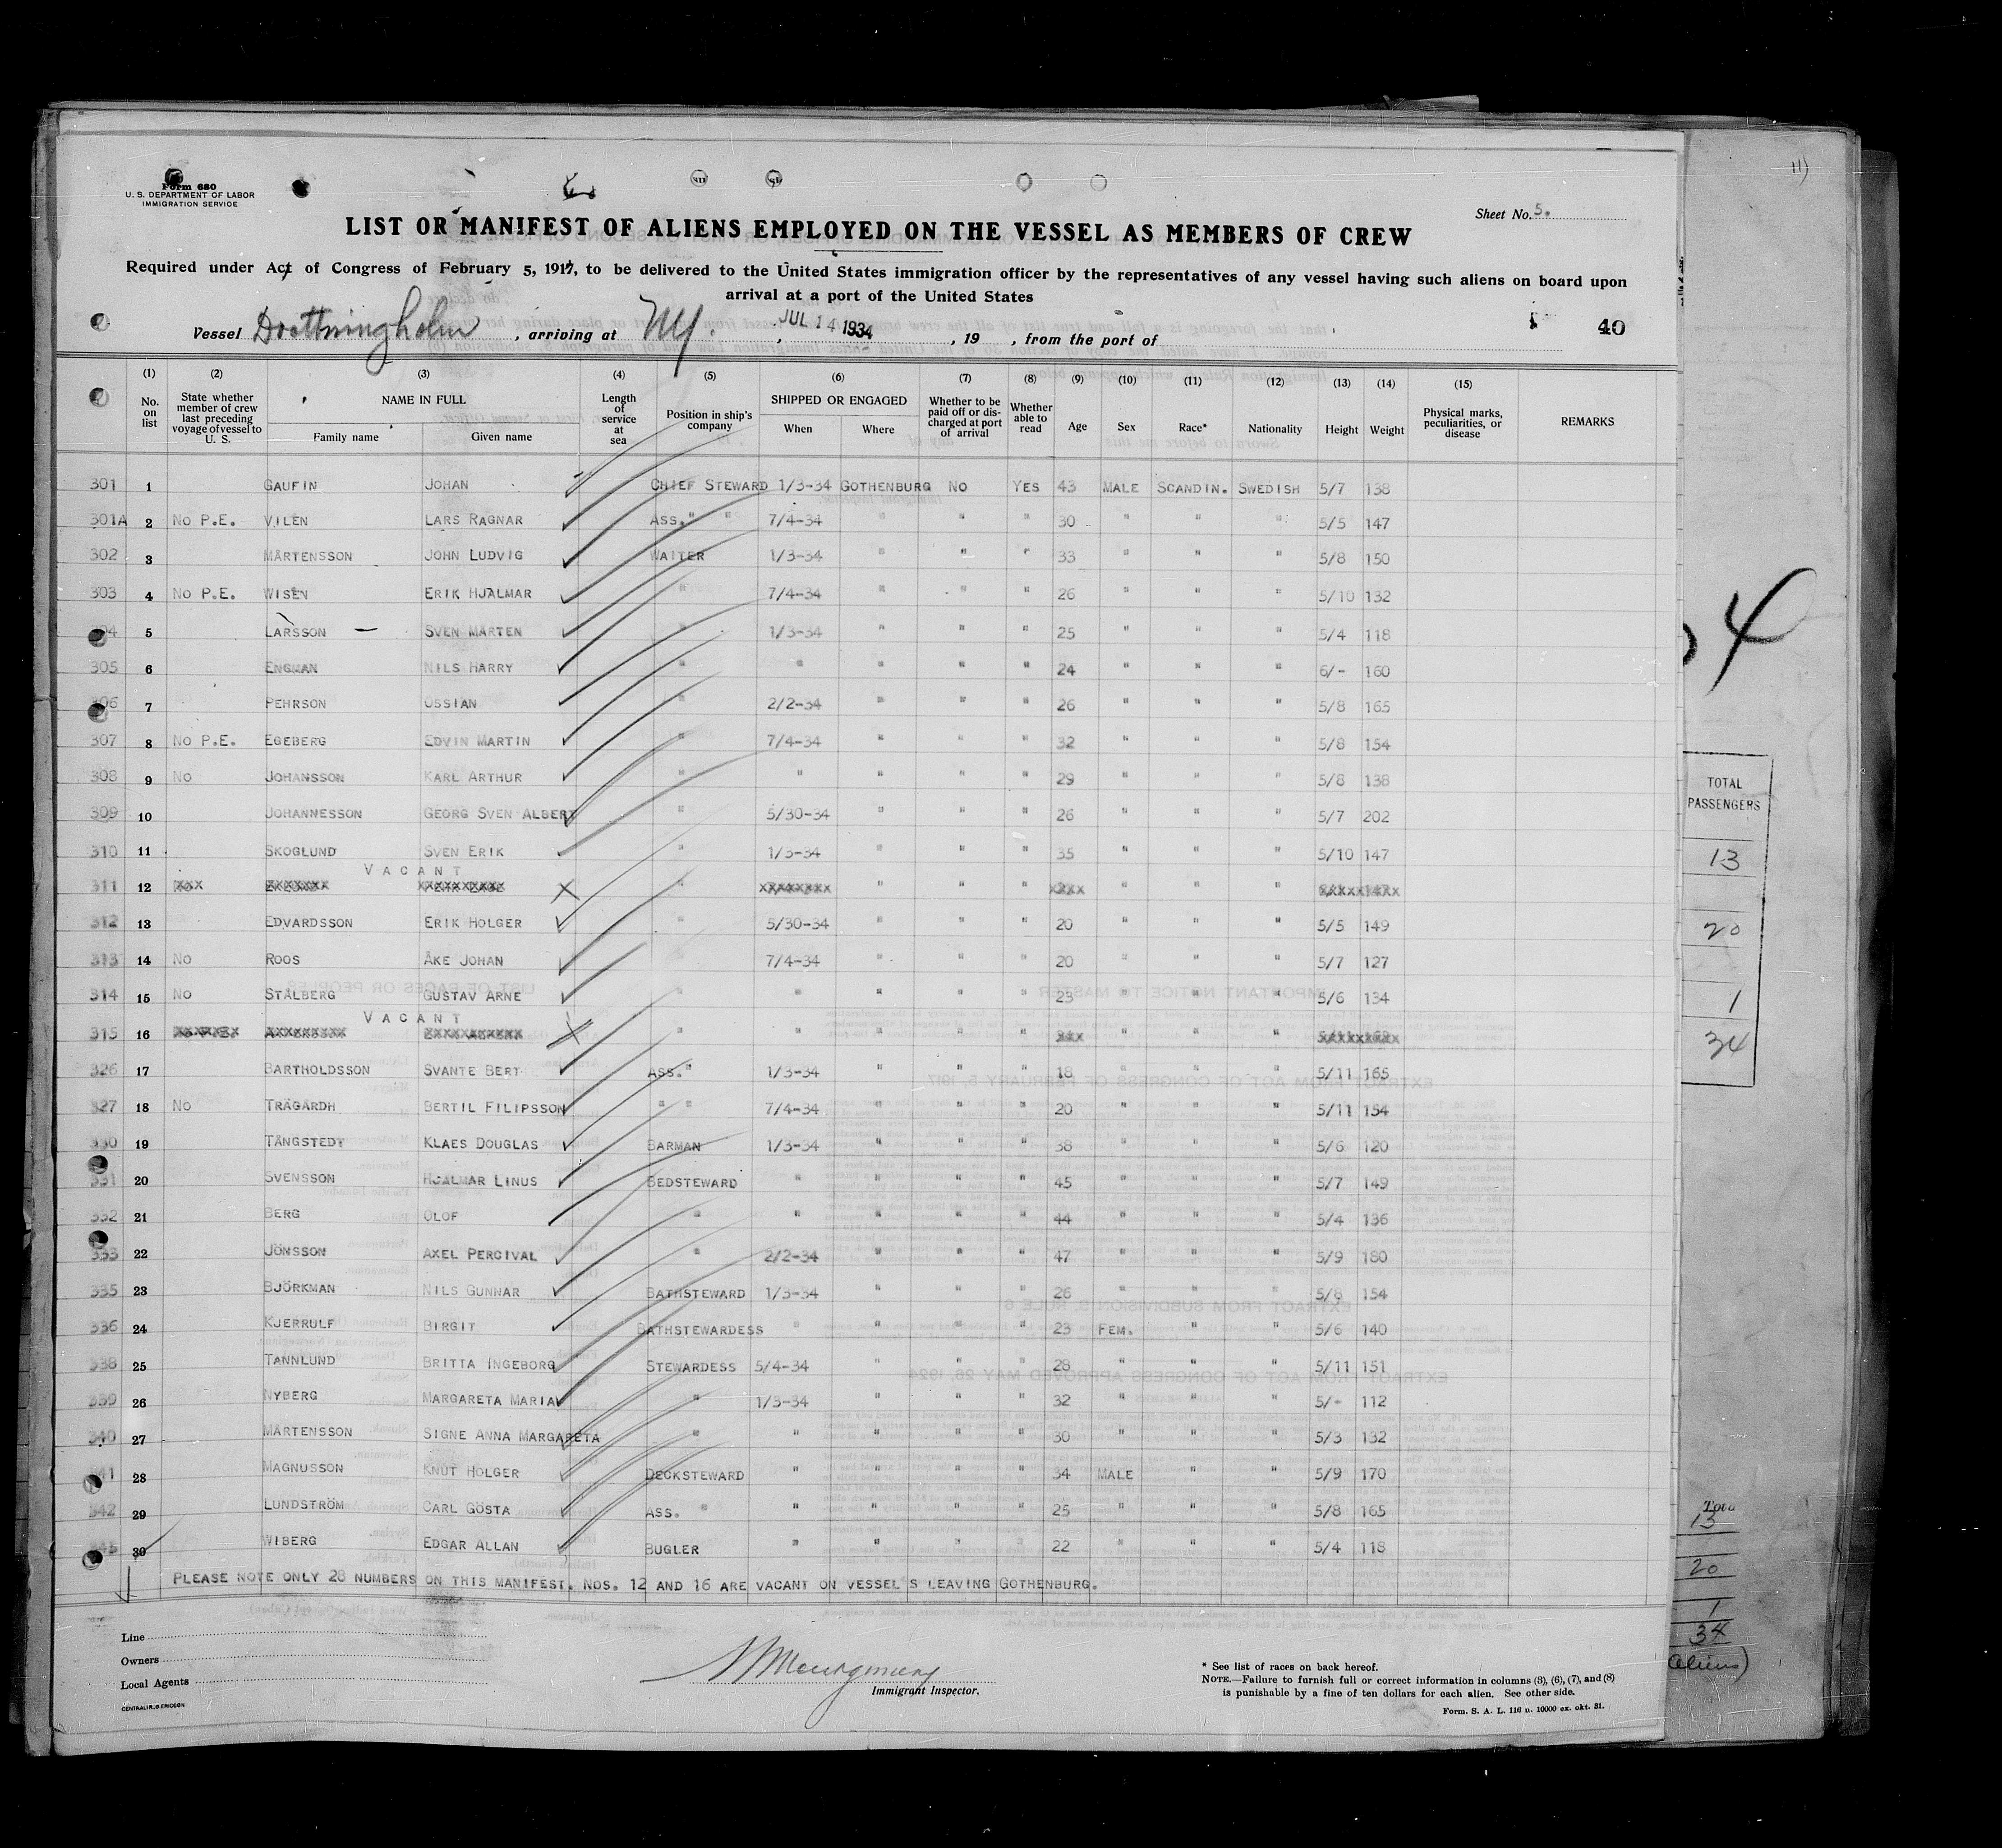 Form 680
U. S. DEPARTMENT OF LABOR
IMMIGRATION SERVICE
Sheet No. 5.
LIST OR MANIFEST OF ALIENS EMPLOYED ON THE VESSEL AS MEMBERS OF CREW
Required under Act of Congress of February 5, 1917, to be delivered to the United States immigration officer by the representatives of any vessel having such aliens on board upon
arrival at a port of the United States
Vessel Drottningholm, arriving at NY. , JUL 14 1934, 19 , from the port of 40
(1) No. on list (2) State whether member of crew last preceding voyage of vessel to U. S. (3) NAME IN FULL Family name Given name (4) Length of service at sea (5) Position in ship's company (6) SHIPPED OR ENGAGED When Where (7) Whether to be paid off or discharged at port of arrival (8) Whether able to read (9) Age (10) Sex (11) Race* (12) Nationality (13) Height (14) Weight (15) Physical marks, peculiarities, or disease REMARKS
301 1 GAUFIN JOHAN CHIEF STEWARD 1/3-34 GOTHENBURG NO YES 43 MALE SCANDIN. SWEDISH 5/7 138
301A 2 NO P.E. VILEN LARS RAGNAR ASS. " " 7/4-34 " " " 30 " " " 5/5 147
302 3 MÅRTENSSON JOHN LUDVIG WAITER 1/3-34 " " " 33 " " " 5/8 150
303 4 NO P.E. WISÉN ERIK HJALMAR " 7/4-34 " " " 26 " " " 5/10 132
5 LARSSON SVEN MÅRTEN " 1/3-34 " " " 25 " " " 5/4 118
305 6 ENGMAN NILS HARRY " " " " " 24 " " " 6/- 160
306 7 PEHRSON OSSIAN " 2/2-34 " " " 26 " " " 5/8 165
307 8 NO P.E. EGEBERG EDVIN MARTIN " 7/4-34 " " " 32 " " " 5/8 154
308 9 NO JOHANSSON KARL ARTHUR " " " " " 29 " " " 5/8 138
309 10 JOHANNESSON GEORG SVEN ALBERT " 5/30-34 " " " 26 " " " 5/7 202
310 11 SKOGLUND SVEN ERIK " 1/3-34 " " " 35 " " " 5/10 147
VACANT
311 12 " " " " " " "
312 13 EDVARDSSON ERIK HOLGER " 5/30-34 " " " 20 " " " 5/5 149
313 14 NO ROOS ÅKE JOHAN 7/4-34 " " " 20 " " " 5/7 127
314 15 NO STÅLBERG GUSTAV ARNE " " " " " 23 " " " 5/6 134
VACANT
315 16 " " " " " " " "
326 17 BARTHOLDSSON SVANTE BERT ASS. " 1/3-34 " " " 18 " " " 5/11 165
327 18 NO TRÄGÅRDH BERTIL FILIPSSON " " 7/4-34 " " " 20 " " " 5/11 154
330 19 TÅNGSTEDT KLAES DOUGLAS BARMAN 1/3-34 " " " 38 " " " 5/6 120
331 20 SVENSSON HJALMAR LINUS BEDSTEWARD " " " " 45 " " " 5/7 149
332 21 BERG OLOF " " " " " 44 " " " 5/4 136
333 22 JÖNSSON AXEL PERCIVAL " 2/2-34 " " " 47 " " " 5/9 180
335 23 BJÖRKMAN NILS GUNNAR BATHSTEWARD 1/3-34 " " " 26 " " " 5/8 154
336 24 KJERRULF BIRGIT BATHSTEWARDESS " " " " 23 FEM. " " 5/6 140
338 25 TANNLUND BRITTA INGEBORG STEWARDESS 5/4-34 " " " 28 " " " 5/11 151
339 26 NYBERG MARGARETA MARIA " 1/3-34 " " " 32 " " " 5/- 112
340 27 MÅRTENSSON SIGNE ANNA MARGARETA " " " " " 30 " " " 5/3 132
28 MAGNUSSON KNUT HOLGER DECKSTEWARD " " " " 34 MALE " " 5/9 170
342 29 LUNDSTRÖM CARL GÖSTA ASS. " " " " " 25 " " " 5/8 165
30 WIBERG EDGAR ALLAN BUGLER " " " " 22 " " " 5/4 118
PLEASE NOTE ONLY 28 NUMBERS ON THIS MANIFEST. NOS. 12 AND 16 ARE VACANT ON VESSEL'S LEAVING GOTHENBURG.
Line
Owners
Local Agents
CENTRALTR. G ERICSON
Montgomery
Immigrant Inspector.
* See list of races on back hereof.
NOTE.—Failure to furnish full or correct information in columns (3), (6), (7), and (8)
is punishable by a fine of ten dollars for each alien. See other side.
Form. S. A. L. 116 n. 10000 ex. okt. 31.
4
TOTAL
PASSENGERS
13
20
1
34
13
20
1
34
Aliens)